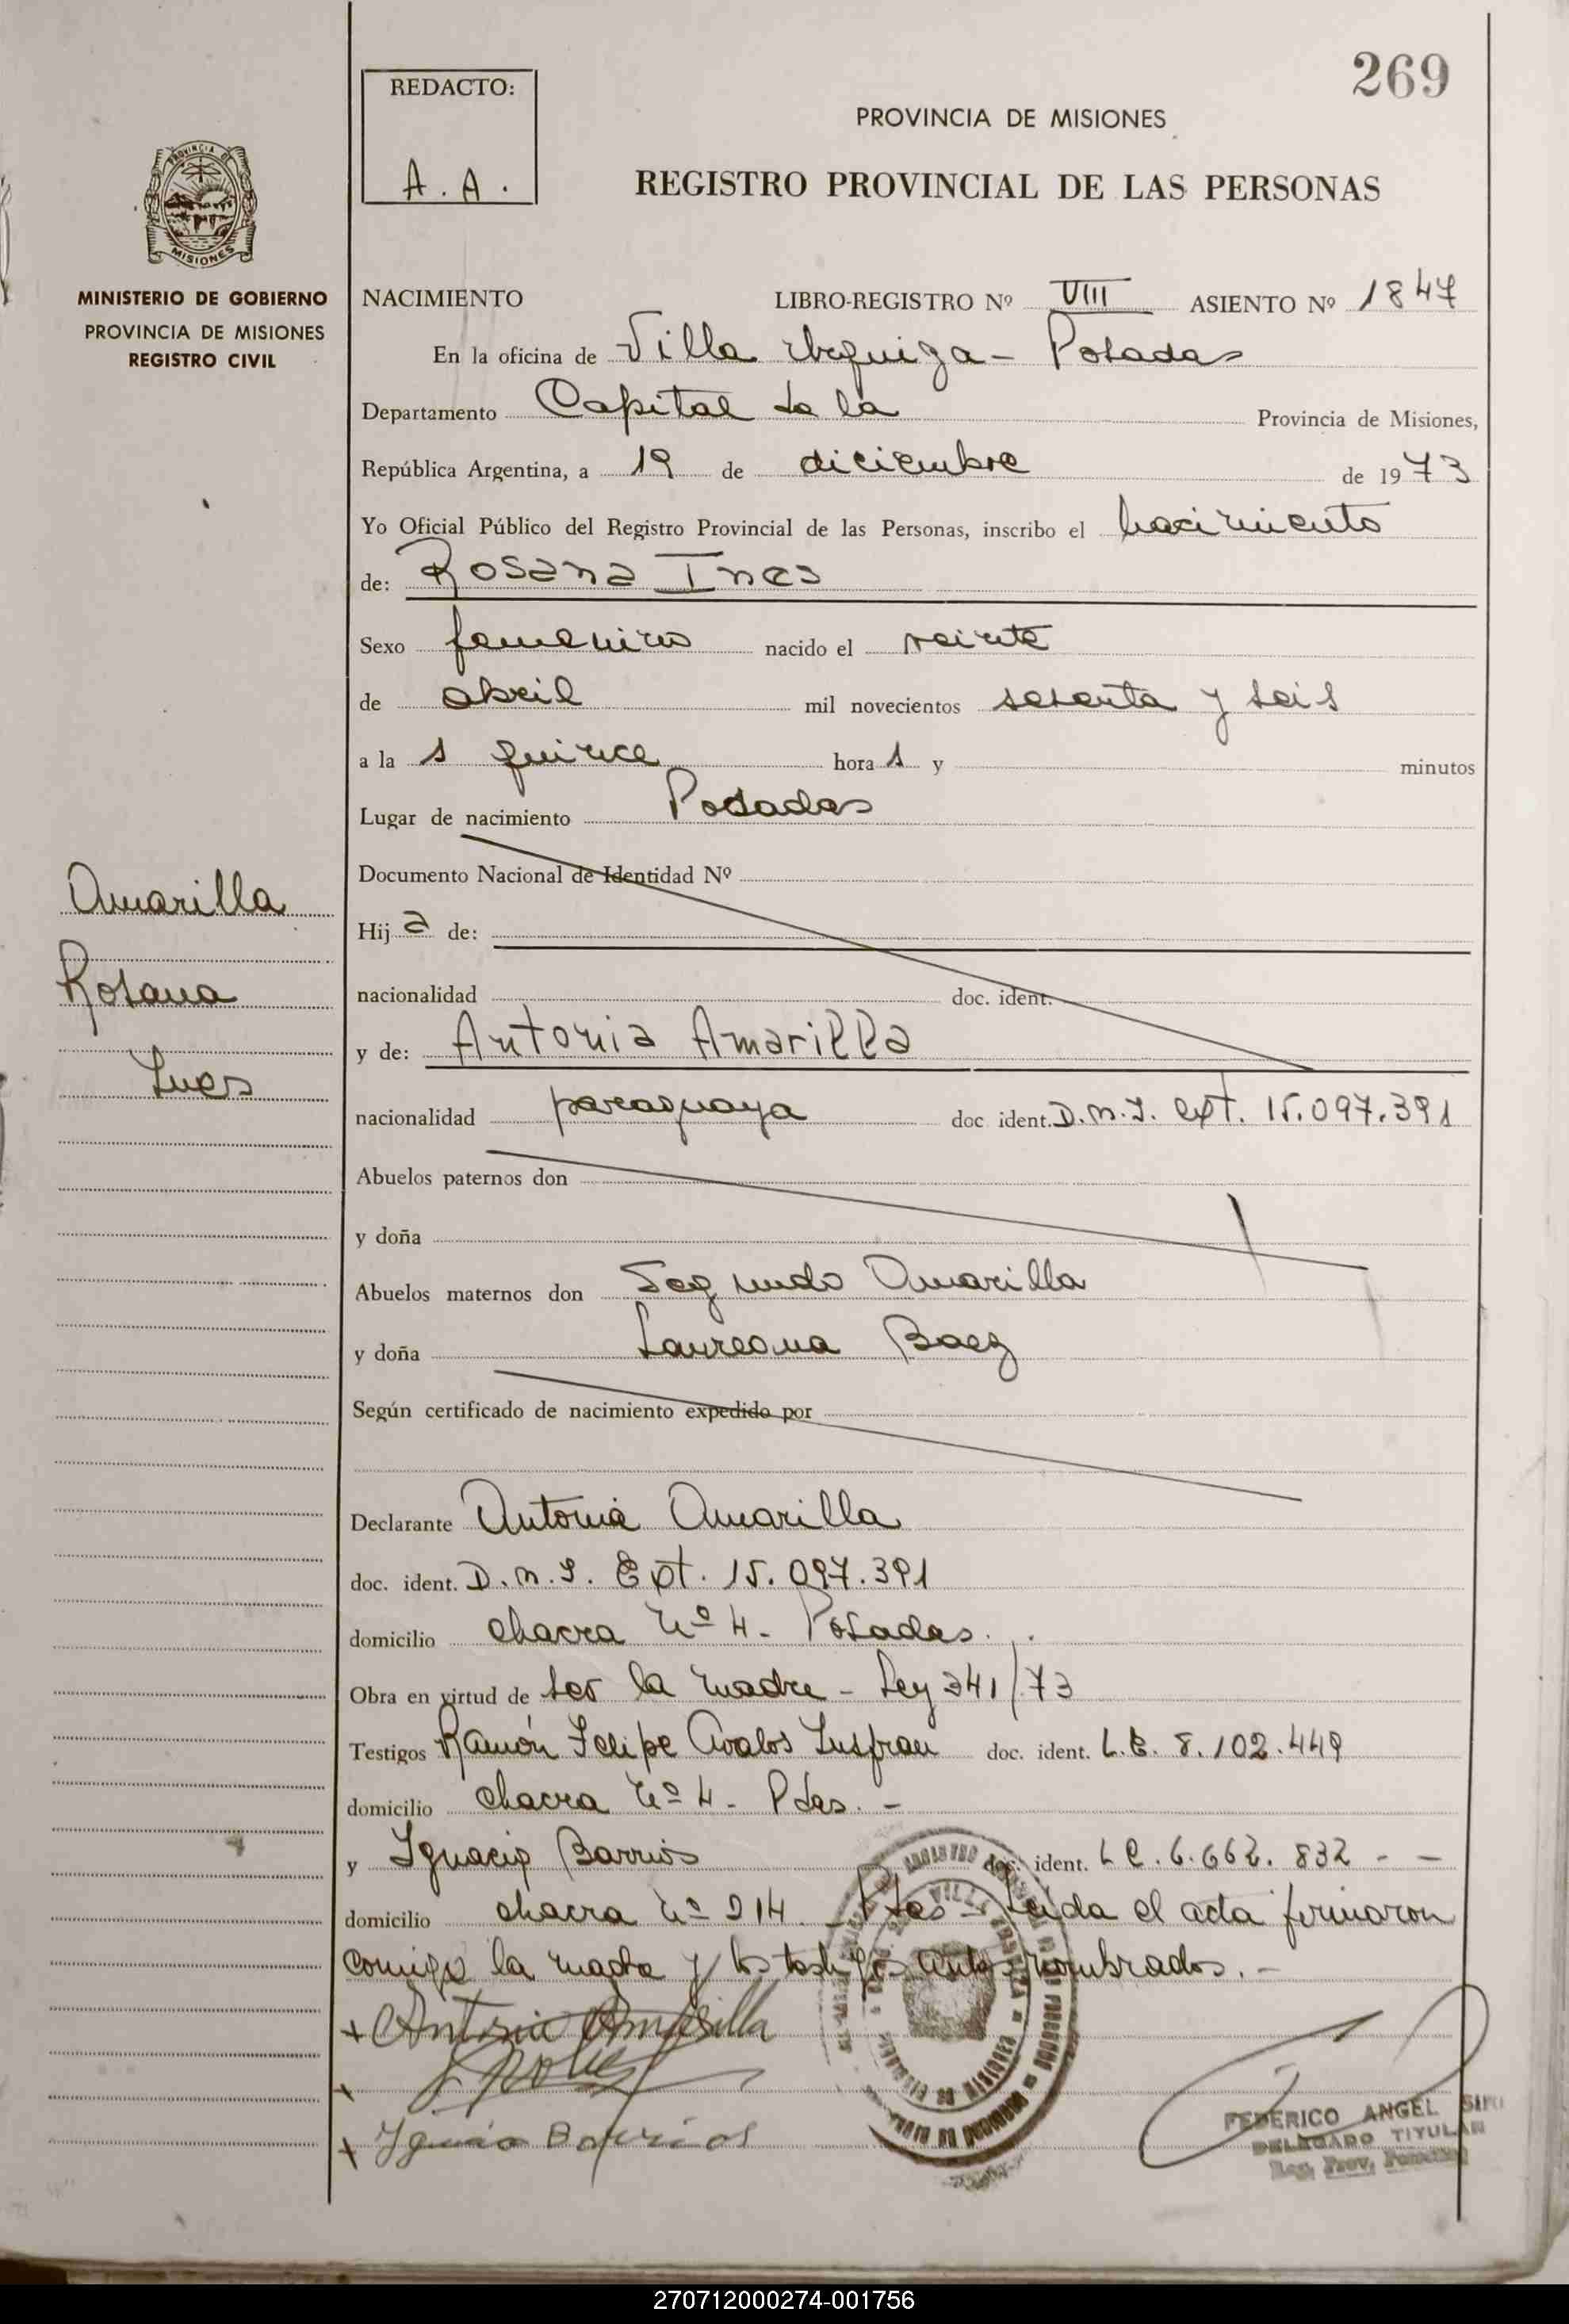 269
REDACTO:
A. A.
PROVINCIA DE MISIONES
REGISTRO PROVINCIAL DE LAS PERSONAS
MISIONES
MINISTERIO DE GOBIERNO
PROVINCIA DE MISIONES
REGISTRO CIVIL
NACIMIENTO LIBRO-REGISTRO Nº VIII ASIENTO Nº 1847
En la oficina de Villa Urquiza - Posadas
Departamento Capital de la Provincia de Misiones,
República Argentina, a 19 de diciembre de 1973
Yo Oficial Público del Registro Provincial de las Personas, inscribo el nacimiento
de: Rosana Ines
Sexo femenino nacido el veinte
de abril mil novecientos sesenta y seis
a la s quince hora s y minutos
Lugar de nacimiento Posadas
Documento Nacional de Identidad Nº
Amarilla
Rosana
Ines
Hij a de:
nacionalidad doc. ident.
y de: Antonia Amarilla
nacionalidad paraguaya doc ident. D.N.I. Ext. 15.097.391
Abuelos paternos don
y doña
Abuelos maternos don Segundo Amarilla
y doña Laureana Baez
Según certificado de nacimiento expedido por
Declarante Antonia Amarilla
doc. ident. D.N.I. Ext. 15.097.391
domicilio chacra nº 4 - Posadas.
Obra en virtud de ser la madre - Ley 341/73
Testigos Ramón Felipe Avalos Insfran doc. ident. L.E. 8.102.449
domicilio chacra nº 4 - Pdas. -
y Ignacio Barrios doc. ident. L E. 6.662.832 - -
domicilio chacra nº 214 - Pdas - Leida el acta firmaron
comigo la madre y los testigos antes nombrados. -
Antonia Amarilla
Ignacio Barrios
FEDERICO ANGEL
DELEGADO TITULAR
Reg. Prov.
270712000274-001756